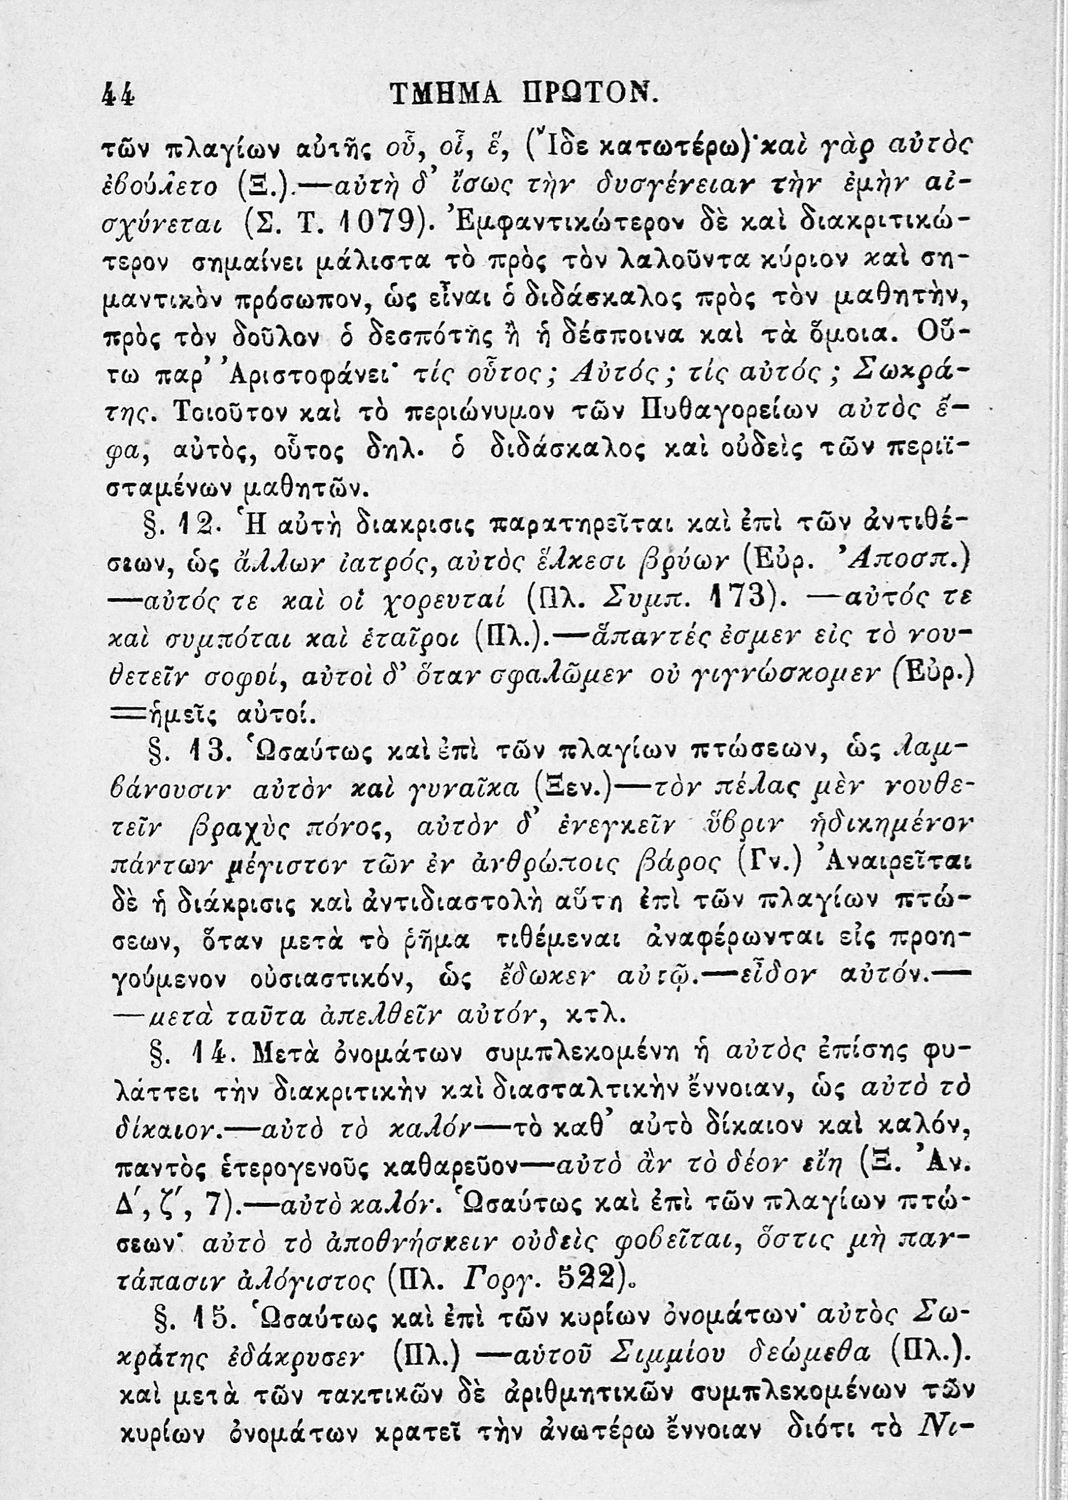 44 ΤΜΗΜΑ ΠΡΩΤΟΝ.
τῶν πλαγίων αὐτῆς οὗ, οἷ, ἕ, (Ἴδε κατωτέρω)·καὶ γὰρ αὐτὸς
ἐβούλετο (Ξ.).—αὐτὴ δ’ ἴσως τὴν δυσγένειαν τὴν ἐμὴν αἰ-
σχύνεται (Σ. Τ. 1079). Ἐμφαντικώτερον δὲ καὶ διακριτικώ-
τερον σημαίνει μάλιστα τὸ πρὸς τὸν λαλοῦντα κύριον καὶ ση-
μαντικὸν πρόσωπον, ὡς εἶναι ὁ διδάσκαλος πρὸς τὸν μαθητὴν,
πρὸς τὸν δοῦλον ὁ δεσπότης ἢ ἡ δέσποινα καὶ τὰ ὅμοια. Οὕ-
τω παρ’ Ἀριστοφάνει· τίς οὗτος; Αὐτός; τίς αὐτός; Σωκρά-
της. Τοιοῦτον καὶ τὸ περιώνυμον τῶν Πυθαγορείων αὐτὸς ἔ-
φα, αὐτὸς, οὗτος δηλ. ὁ διδάσκαλος καὶ οὐδεὶς τῶν περιϊ-
σταμένων μαθητῶν.
§. 12. Ἡ αὐτὴ διακρισις παρατηρεῖται καὶ ἐπὶ τῶν ἀντιθέ-
σεων, ὡς ἄλλων ἰατρός, αὐτὸς ἕλκεσι βρύων (Εὐρ. Ἀποσπ.)
—αὐτός τε καὶ οἱ χορευταί (Πλ. Συμπ. 173). —αὐτός τε
καὶ συμπόται καὶ ἑταῖροι (Πλ.).—ἅπαντές ἐσμεν εἰς τὸ νου-
θετεῖν σοφοί, αὐτοὶ δ’ ὅταν σφαλῶμεν οὐ γιγνώσκομεν (Εὐρ.)
=ἡμεῖς αὐτοί.
§. 13. Ὡσαύτως καὶ ἐπὶ τῶν πλαγίων πτώσεων, ὡς λαμ-
βάνουσιν αὐτὸν καὶ γυναῖκα (Ξεν.)—τὸν πέλας μὲν νουθε-
τεῖν βραχὺς πόνος, αὐτὸν δ’ ἐνεγκεῖν ὕβριν ἠδικημένον
πάντων μέγιστον τῶν ἐν ἀνθρώποις βάρος (Γν.) Ἀναιρεῖται
δὲ ἡ διάκρισις καὶ ἀντιδιαστολὴ αὕτη ἐπὶ τῶν πλαγίων πτώ-
σεων, ὅταν μετὰ τὸ ῥῆμα τιθέμεναι ἀναφέρωνται εἰς προη-
γούμενον οὐσιαστικόν, ὡς ἔδωκεν αὐτῷ.—εἶδον αὐτόν.—
—μετὰ ταῦτα ἀπελθεῖν αὐτόν, κτλ.
§. 14. Μετὰ ὀνομάτων συμπλεκομένη ἡ αὐτὸς ἐπίσης φυ-
λάττει τὴν διακριτικὴν καὶ διασταλτικὴν ἔννοιαν, ὡς αὐτὸ τὸ
δίκαιον.—αὐτὸ τὸ καλόν—τὸ καθ’ αὑτὸ δίκαιον καὶ καλόν,
παντὸς ἑτερογενοῦς καθαρεῦον—αὐτὸ ἂν τὸ δέον εἴη (Ξ. Ἀν.
Δ΄, ζ΄, 7).—αὐτὸ καλόν. Ὡσαύτως καὶ ἐπὶ τῶν πλαγίων πτώ-
σεων· αὐτὸ τὸ ἀποθνήσκειν οὐδεὶς φοβεῖται, ὅστις μὴ παν-
τάπασιν ἀλόγιστος (Πλ. Γοργ. 522).
§. 15. Ὡσαύτως καὶ ἐπὶ τῶν κυρίων ὀνομάτων· αὐτὸς Σω-
κράτης ἐδάκρυσεν (Πλ.) —αὐτοῦ Σιμμίου δεώμεθα (Πλ.).
καὶ μετὰ τῶν τακτικῶν δὲ ἀριθμητικῶν συμπλεκομένων τῶν
κυρίων ὀνομάτων κρατεῖ τὴν ἀνωτέρω ἔννοιαν διότι τὸ Νι-